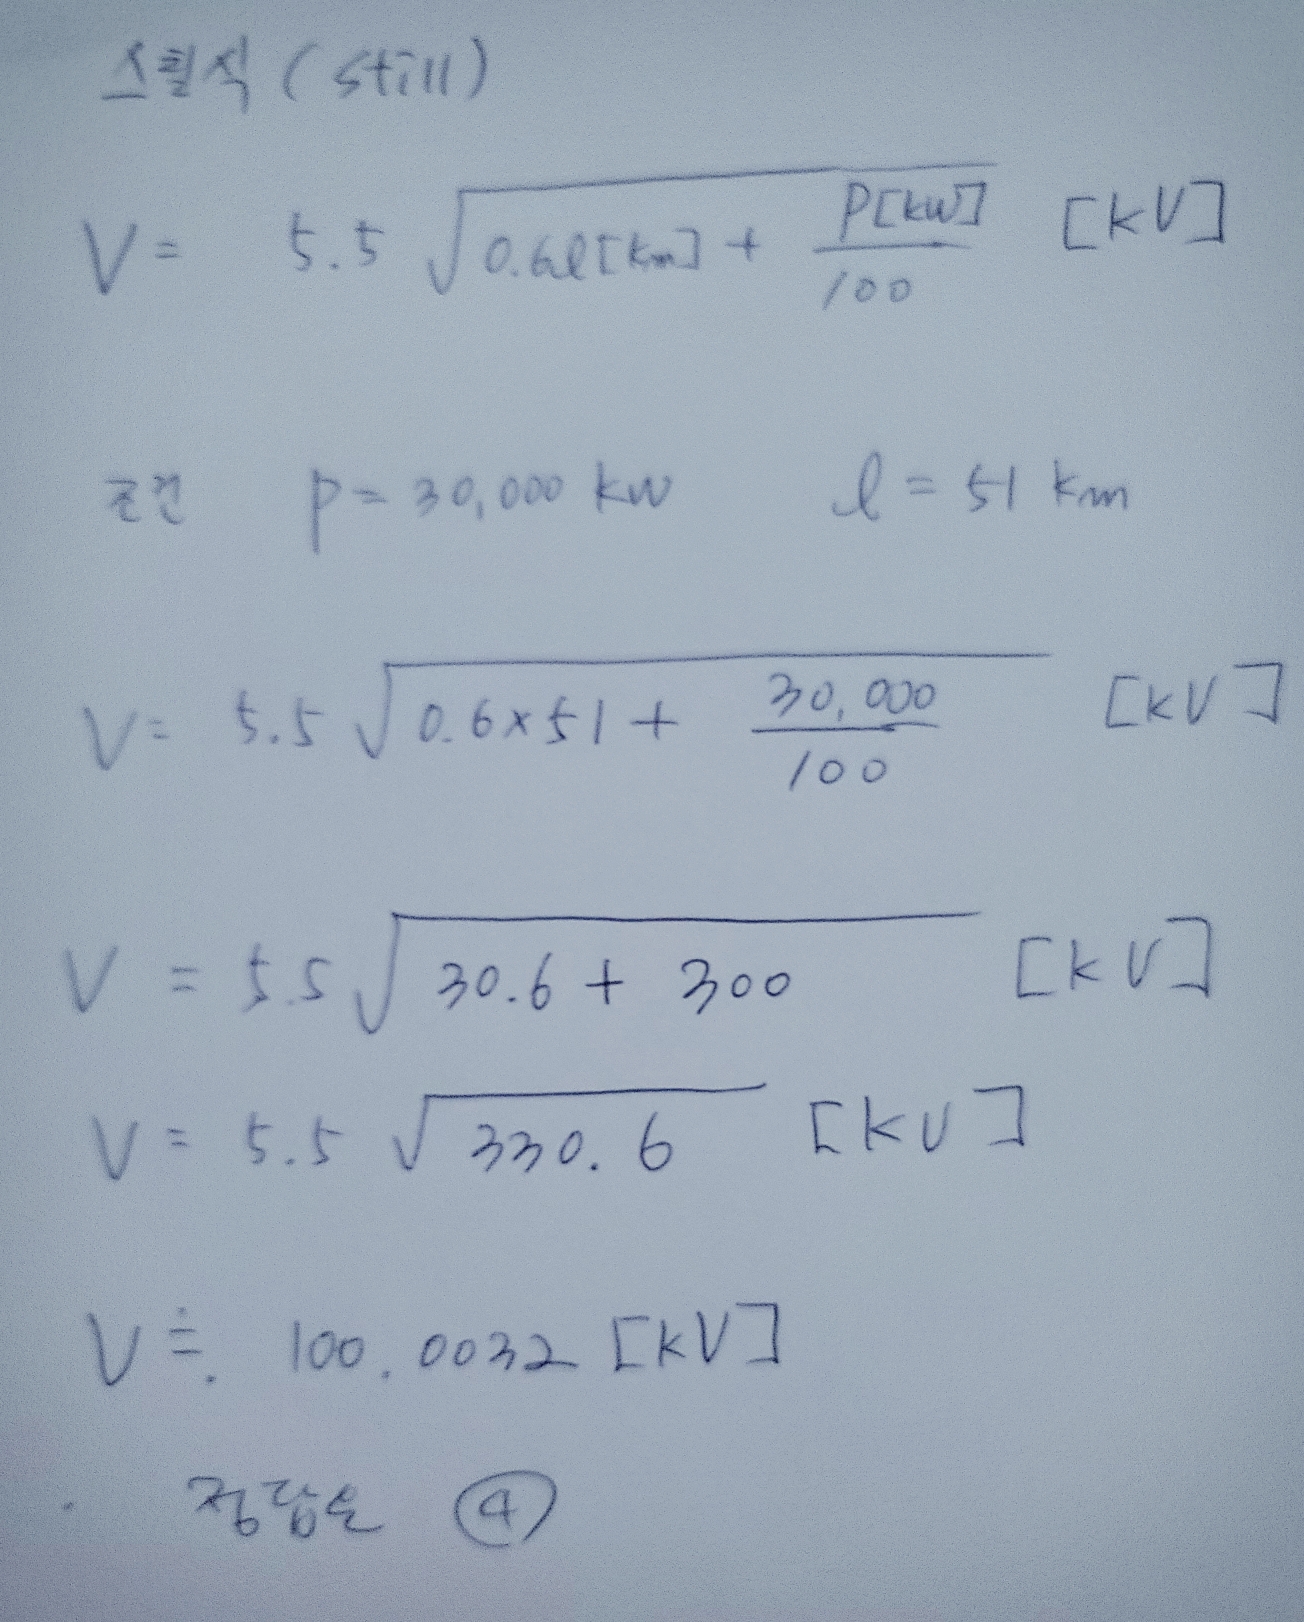 스틸식 (still)
V = 5.5 √0.6l[km] + P[kW]/100 [kV]
조건 P = 30,000 kW l = 51 km
V = 5.5 √0.6×51 + 30,000/100 [kV]
V = 5.5 √30.6 + 300 [kV]
V = 5.5 √330.6 [kV]
V ≒ 100.0032 [kV]
정답은 ④